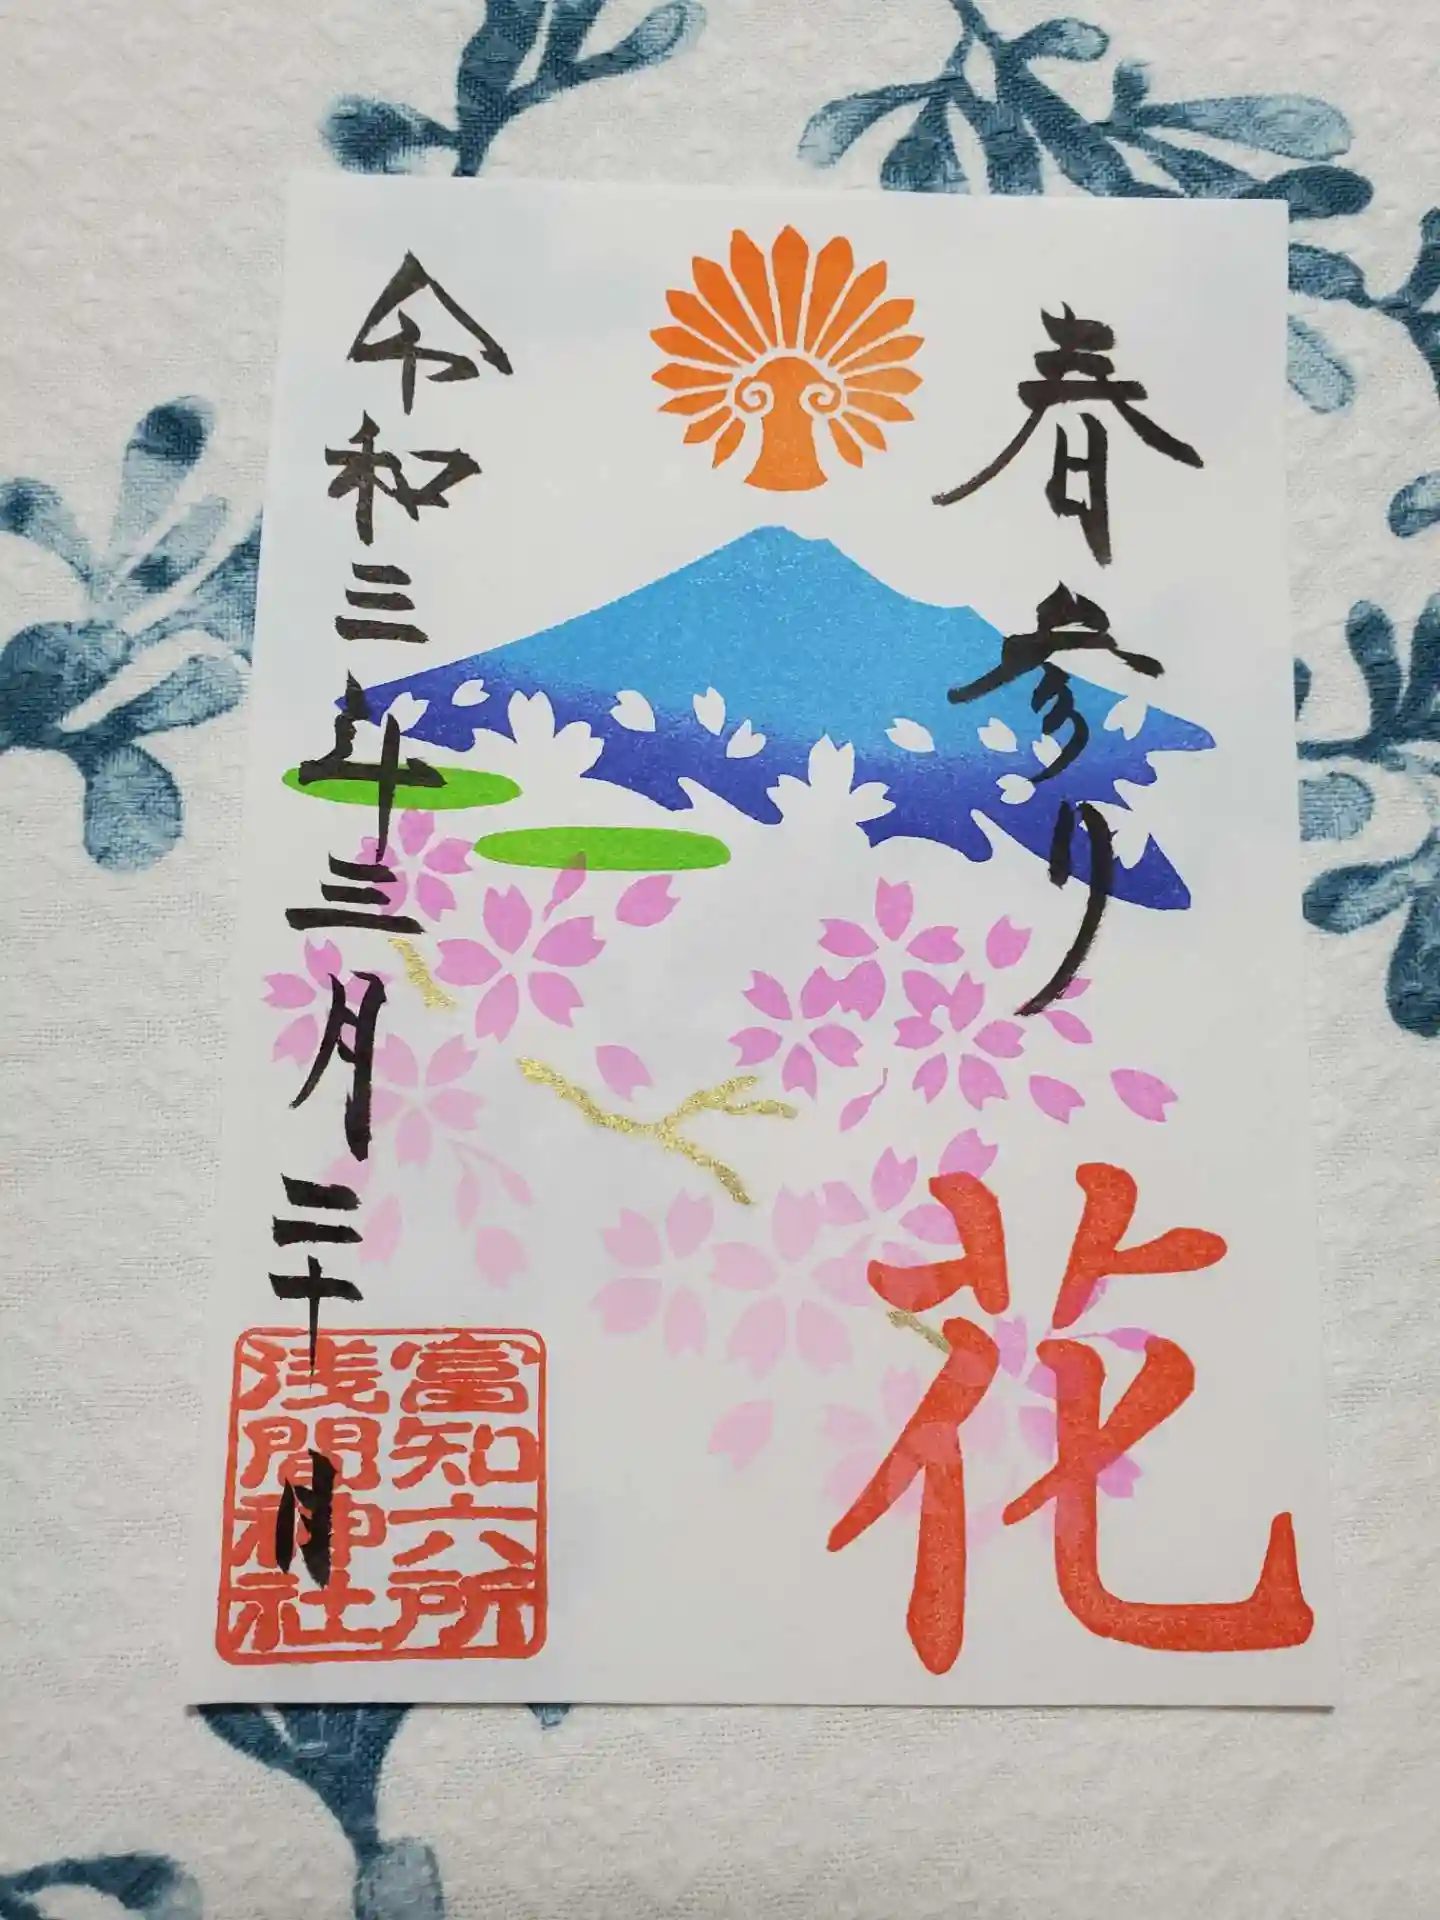 春参り
花
令和三年三月二十日
富知六所
浅間神社